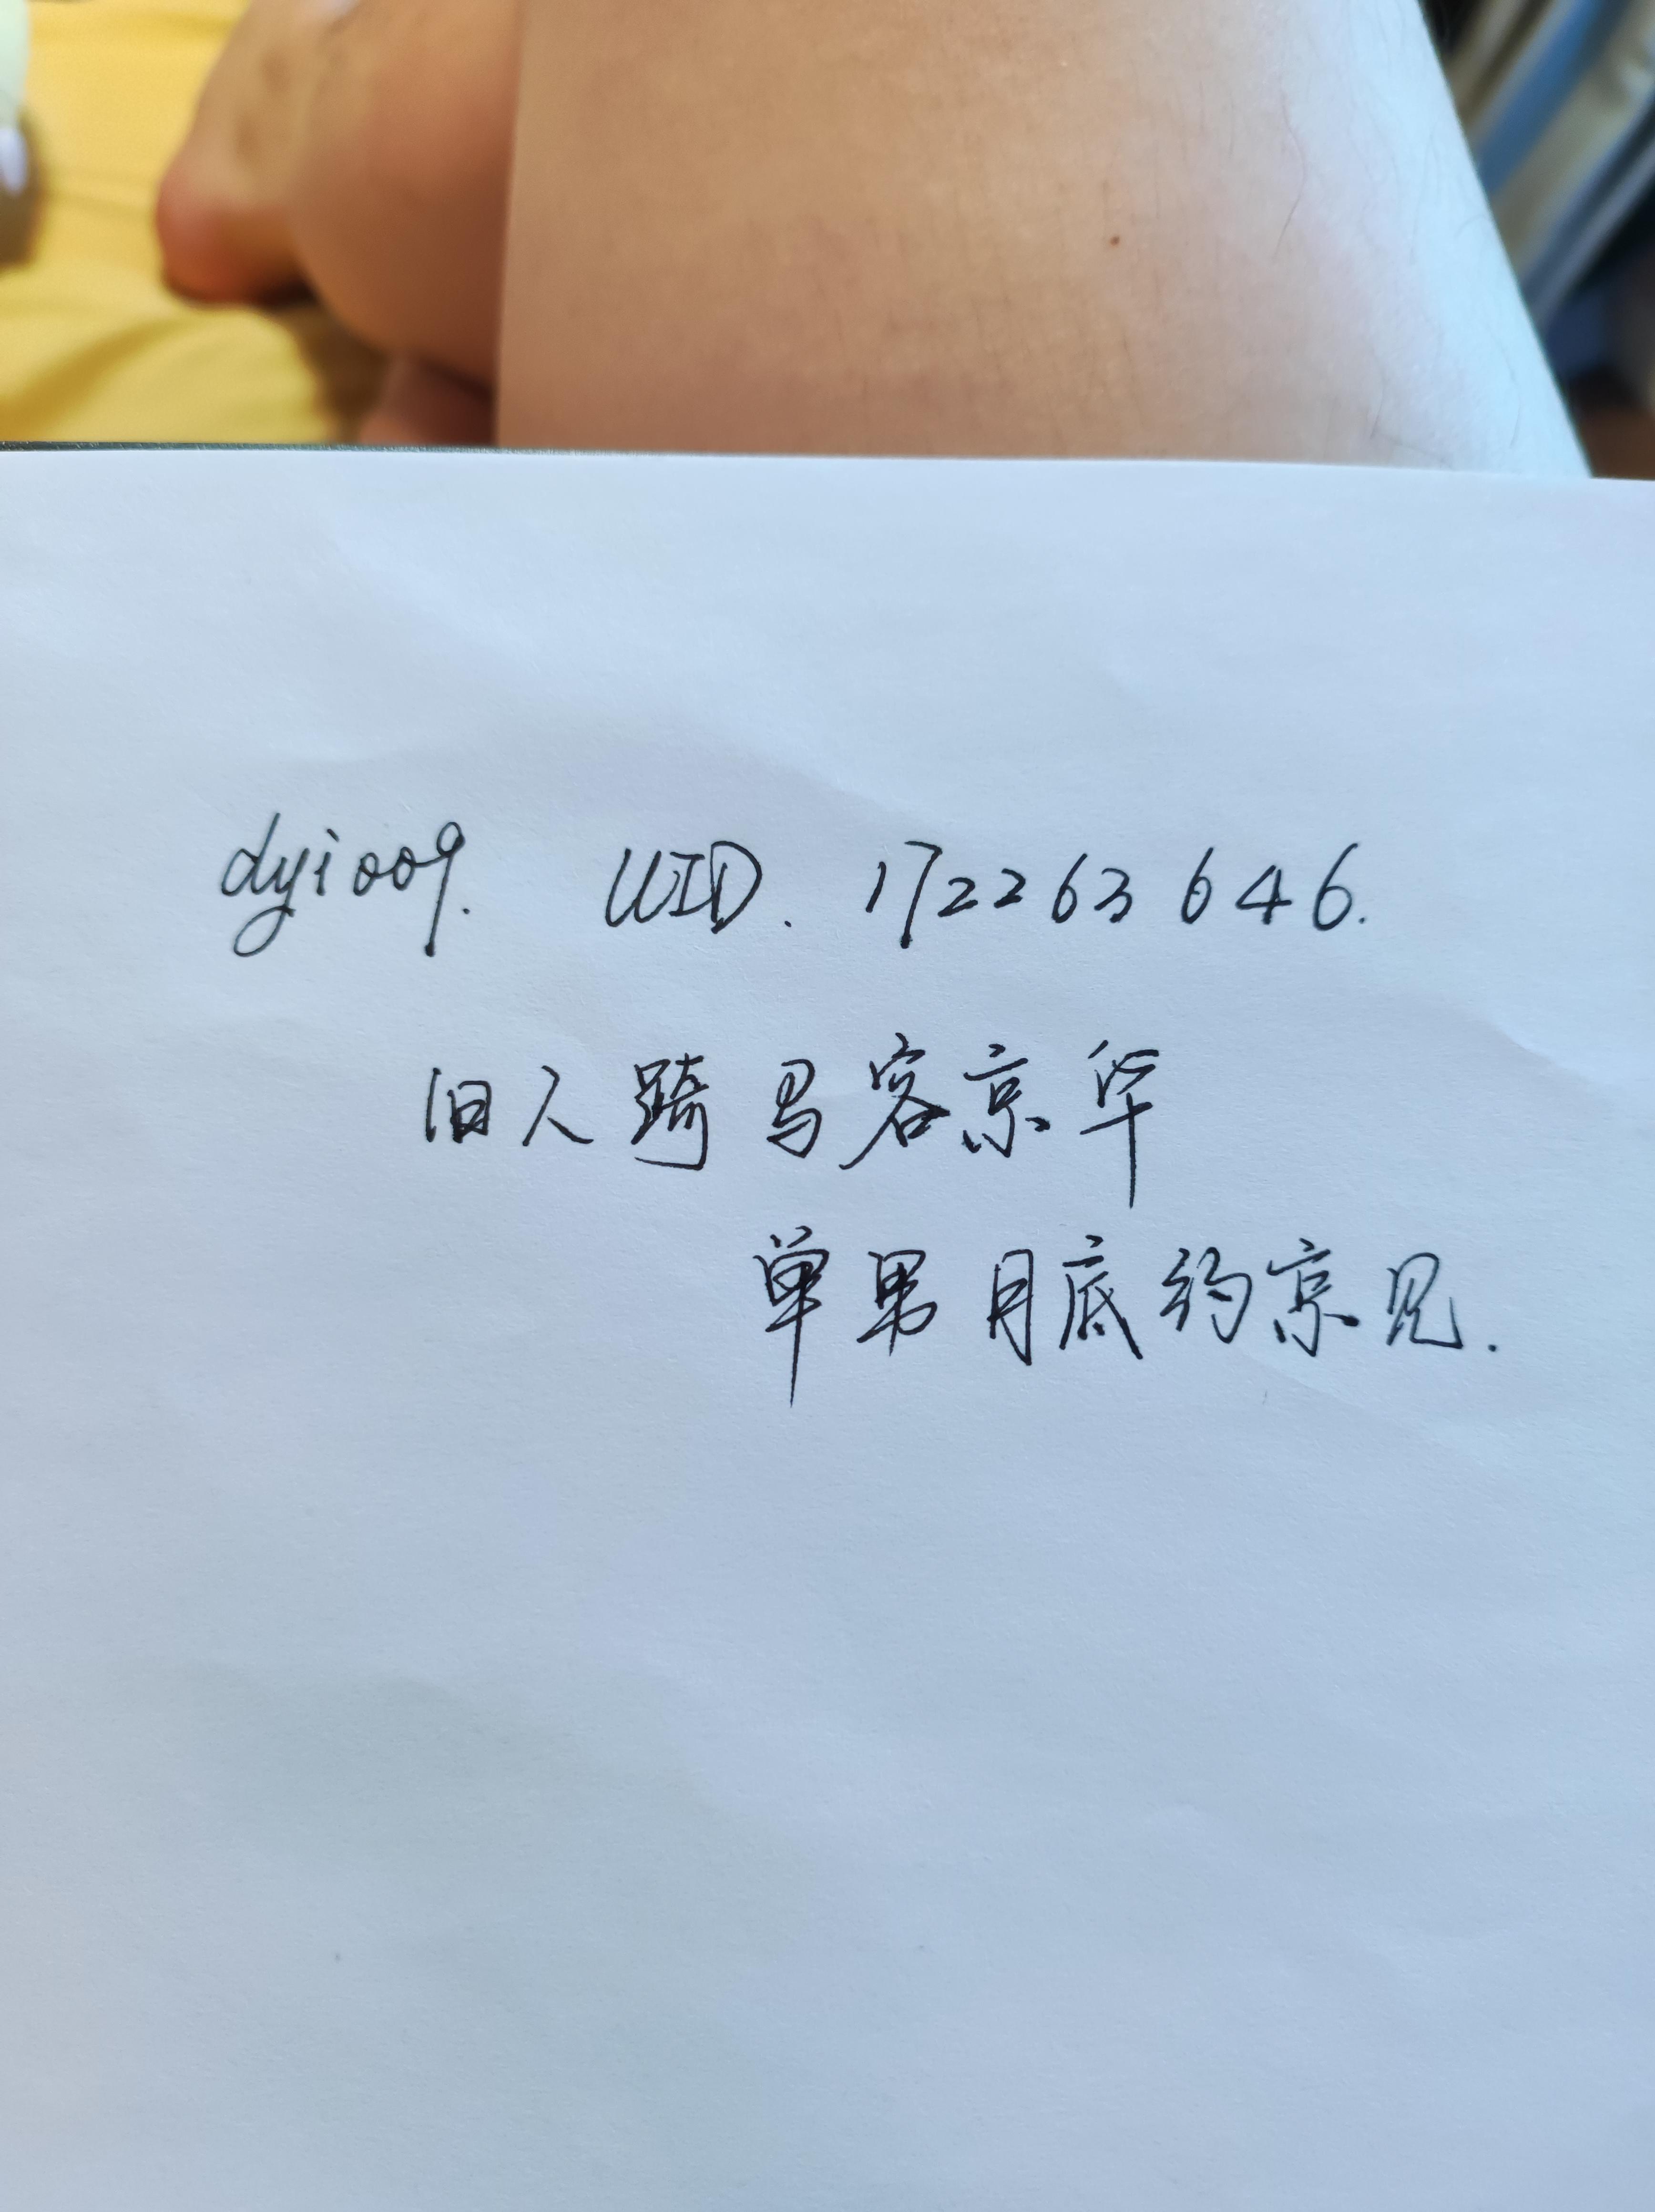 dyi009. UID. 172263646.
旧人踦马客京华
单男月底约京见.